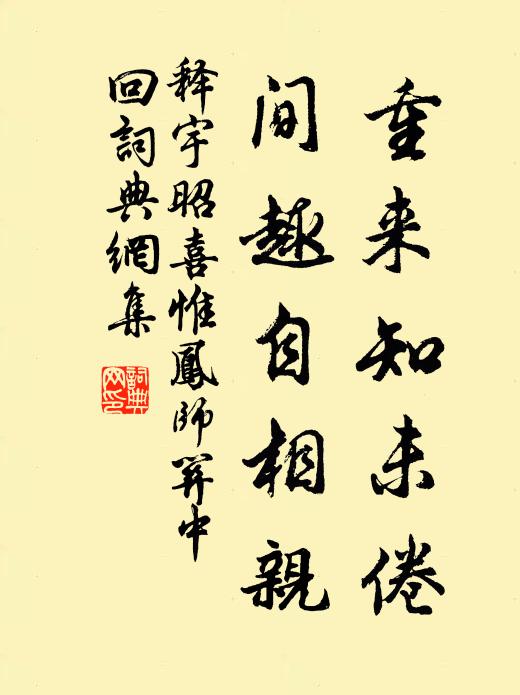 重来知未倦
间趣自相親
释宇昭喜惟鳳師关中
回詞典網集
詞典
网印